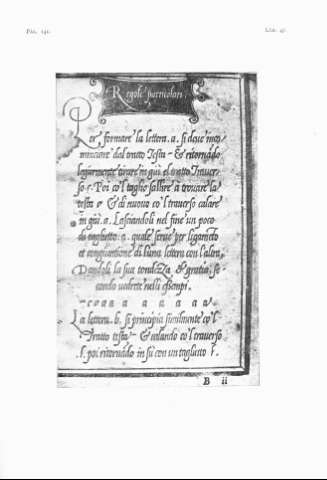 Regole particolari.
Per formare la lettera .a. si deve inco
minciare dal tratto Testa - & ritornādo
legiermente tirare in giù il tratto Traver
so r. Poi co'l taglio sallire à trovare la
testa & di nuovo co'l traverso calare
in giù .a. Lasciandoli nel fine un poco
di taglietto .a. quale serve per ligamēto
et congiuntione di l'una lettera con l'altra,
Dandoli la sua tondezza & gratia, se
condo vedrete nelli essempi.
a a a a a
La lettera .b. si principia similmente co'l
Tratto testa - & calando co'l traverso
.l. poi ritornādo in sù con un taglietto
B ii